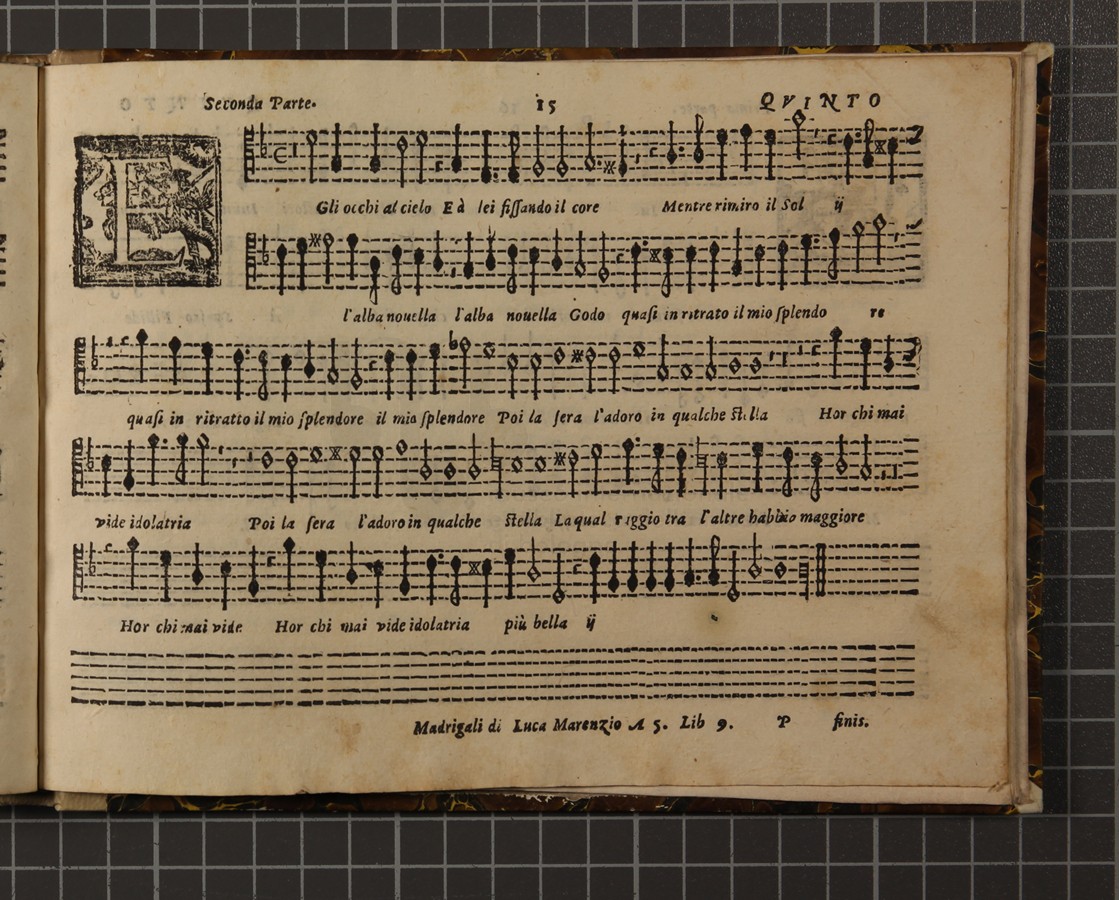 Seconda Parte. 15 QVINTO
E Gli occhi al cielo E à lei fiſſando il core Mentre rimiro il Sol ij
l'alba nouella l'alba nouella Godo quaſi in ritrato il mio ſplendo re
quaſi in ritratto il mio ſplendore il mio ſplendore Poi la ſera l'adoro in qualche ſtella Hor chi mai
vide idolatria Poi la ſera l'adoro in qualche ſtella La qual raggio tra l'altre habbia maggiore
Hor chi mai vide Hor chi mai vide idolatria più bella ij
Madrigali di Luca Marenzio A 5. Lib 9. P finis.